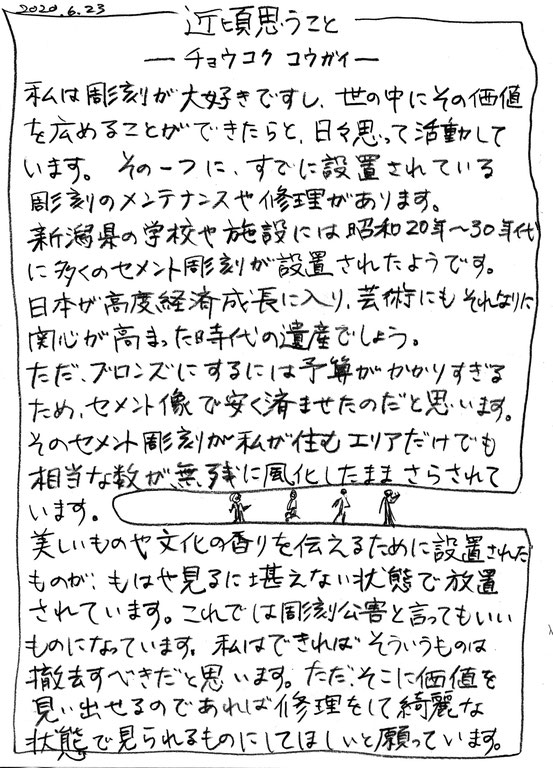 2020.6.23
近頃思うこと
—チョウコク コウガイ—
私は彫刻が大好きですし、世の中にその価値
を広めることができたらと、日々思って活動して
います。その一つに、すでに設置されている
彫刻のメンテナンスや修理があります。
新潟県の学校や施設には昭和20年~30年代
に多くのセメント彫刻が設置されたようです。
日本が高度経済成長に入り、芸術にもそれなりに
関心が高まった時代の遺産でしょう。
ただ、ブロンズにするには予算がかかりすぎる
ため、セメント像で安く済ませたのだと思います。
そのセメント彫刻が私が住むエリアだけでも
相当な数が、無残に風化したままさらされて
います。
美しいものや文化の香りを伝えるために設置された
ものが、もはや見るに堪えない状態で放置
されています。これでは彫刻公害と言ってもいい
ものになっています。私はできればそういうものは
撤去すべきだと思います。ただ、そこに価値を
見い出せるのであれば修理をして綺麗な
状態で見られるものにしてほしいと願っています。